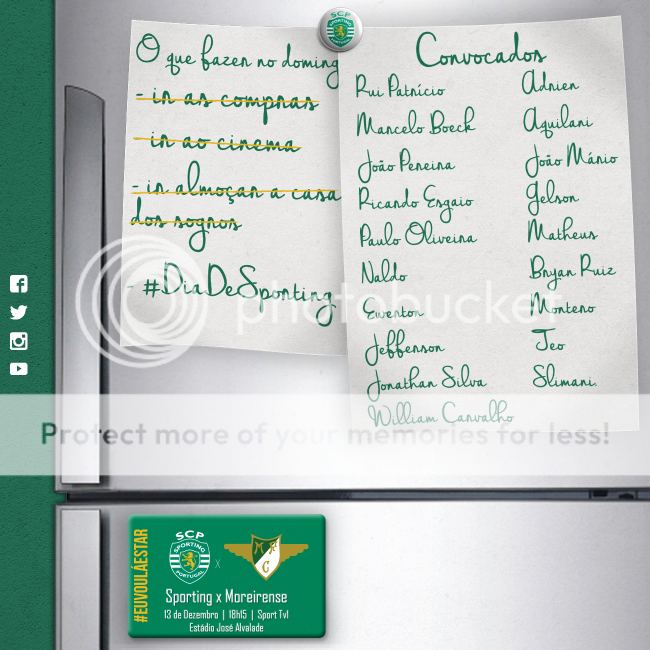 SCP
SPORTING
PORTUGAL
O que fazer no doming
- ir as compras
- ir ao cinema
- ir almoçar a casa
dos sogros
- #DiaDeSporting
Convocados
Rui Patrício
Marcelo Boeck
João Pereira
Ricardo Esgaio
Paulo Oliveira
Naldo
Ewerton
Jefferson
Jonathan Silva
William Carvalho
Adrien
Aquilani
João Mário
Gelson
Matheus
Bryan Ruiz
Montero
Teo
Slimani.
photobucket
Protect more of your memories for less!
#EUVOULÁESTAR
SCP
SPORTING
PORTUGAL
x
M F C
Sporting x Moreirense
13 de Dezembro | 18h15 | Sport Tv1
Estádio José Alvalade